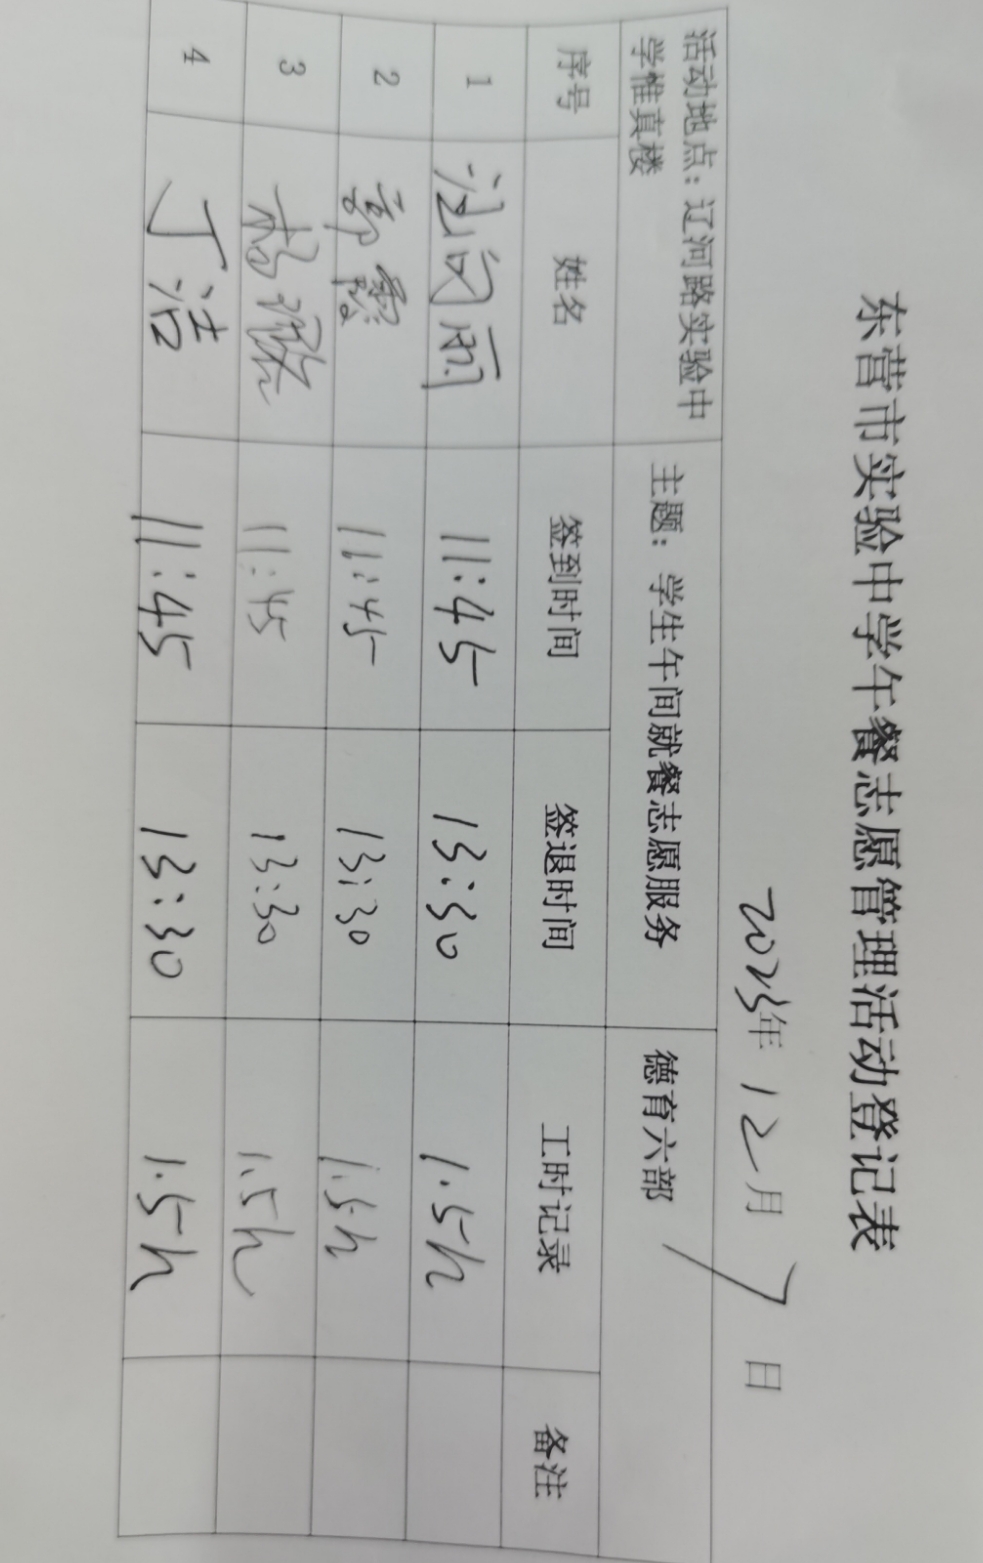 东营市实验中学午餐志愿管理活动登记表
2023年 12月 7日
活动地点：辽河路实验中学惟真楼 主题：学生午间就餐志愿服务 德育六部
序号 姓名 签到时间 签退时间 工时记录 备注
1 11:45 13:30 1.5h
2 郭霞 11:45 13:30 1.5h
3 11:45 13:30 1.5h
4 丁浩 11:45 13:30 1.5h